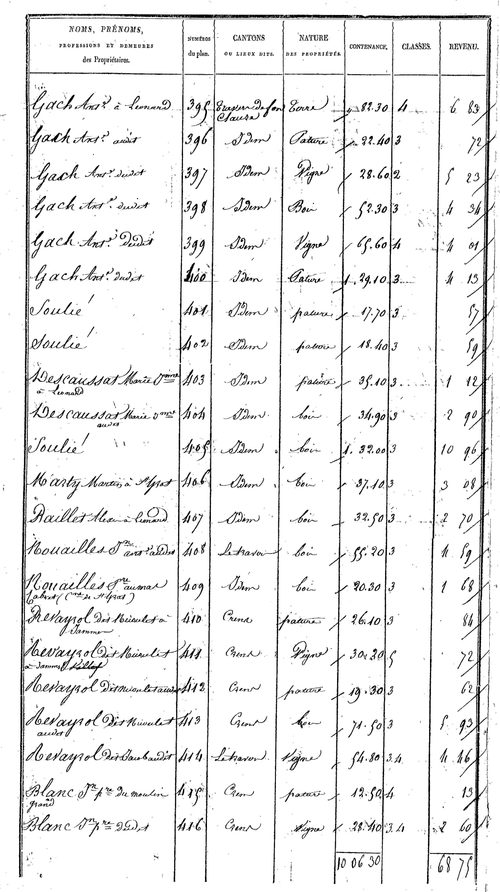 NOMS, PRÉNOMS, PROFESSIONS ET DEMEURES des Propriétaires. NUMÉROS du plan. CANTONS OU LIEUX DITS. NATURE DES PROPRIÉTÉS. CONTENANCE. CLASSES. REVENU.
Gach Ant.e à Léonard 395 Terre 82.30 4 6 83
Gach Ant.e audit 396 Idem Pature 22.40 3 72
Gach Ant.e dudit 397 Idem Vigne 28.60 2 5 23
Gach Ant.e dudit 398 Idem Bois 52.30 3 4 34
Gach Ant.e Dudit 399 Idem Vigne 65.60 4 4 01
Gach Ant.e dudit 400 Idem Pature 1. 29.10 3 4 13
Soulié 401 Idem pature 17.70 3 57
Soulié 402 Idem pature 18.40 3 59
Descaussat Marie 403 Idem pature 35.10 3 1 12
à Léonard
Descaussat Marie 404 Idem bois 34.90 3 2 90
audit
Soulié 405 Idem bois 1. 32.00 3 10 96
Marty Martin à 406 Idem bois 37.10 3 3 08
Raillet à Léonard 407 Idem bois 32.50 3 2 70
Nouailles 408 Letravers bois 55.20 3 4 59
Nouailles 409 Idem bois 20.30 3 1 68
Revayrol des Miculet à 410 Crons pature 26.10 3 84
Revayrol des Miculet 411 Crons Vigne 30.20 5 72
Revayrol des Miculet audit 412 Crons pature 19.30 3 62
Revayrol des Miculet 413 Crons bois 71.50 3 5 93
audit
Revayrol 414 Letravers Vigne 54.80 3.4 4 46
Blanc Jn pre du moulin 415 Crons pature 12.50 4 13
grand
Blanc Jn pre dudit 416 Crons Vigne 28.40 3.4 2 60
10 06 30 68 75